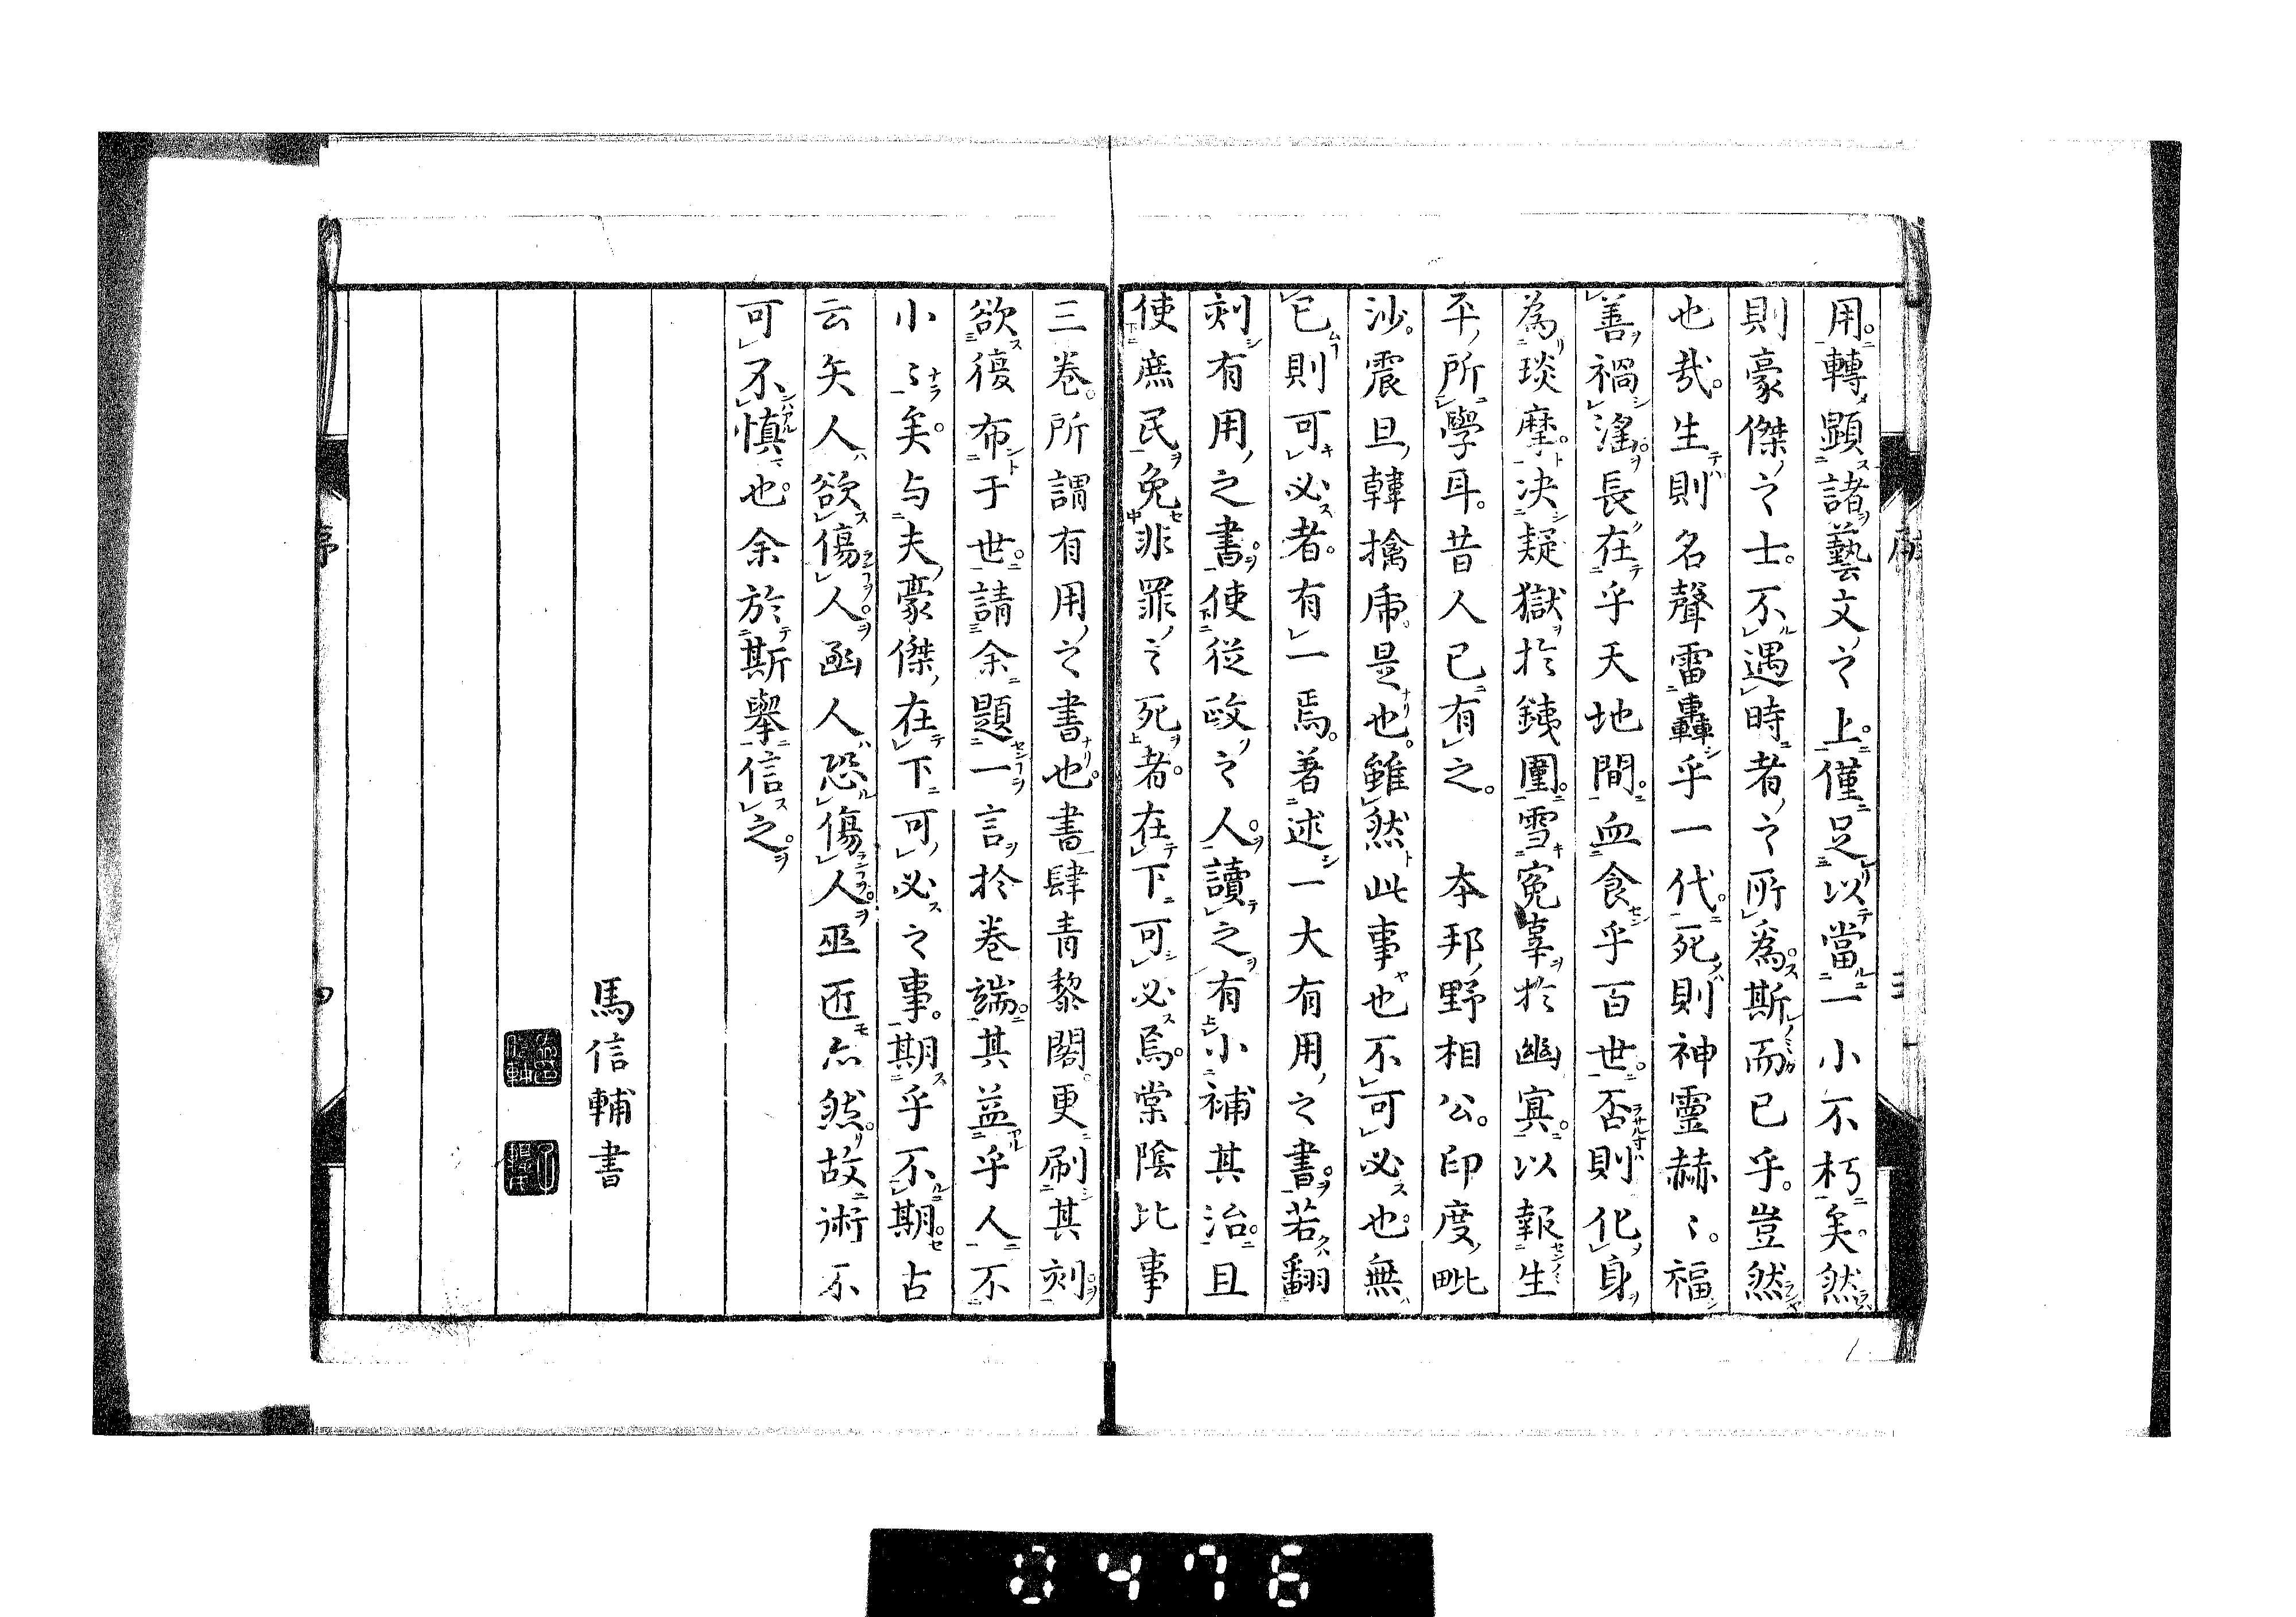 用轉顕諸藝文之上僅足以當一小不朽矣然
則豪傑之士不遇時者之所為斯而已乎豈然
也哉生則名聲雷轟乎一代死則神靈赫〻福
善禍淫長在乎天地間血食乎百世否則化身
為琰摩決疑獄於銕圍雪寃辜於幽冥以報生
平所學耳昔人已有之 本邦野相公印度毗
沙震旦韓擒虎是也雖然此事也不可必也無
已則可必者有一焉著述一大有用之書若翻
刻有用之書使從政之人讀之有小補其治且
使庶民免非罪之死者在下可必焉棠陰比事
三巻所謂有用之書也書肆青黎閣更刷其刻
欲復布于世請余題一言於巻端其益乎人不
小〻矣与夫豪傑在下可必之事期乎不期古
云矢人欲傷人函人恐傷人巫匠亦然故術不
可不慎也余於斯舉信之
馬信輔書
0476